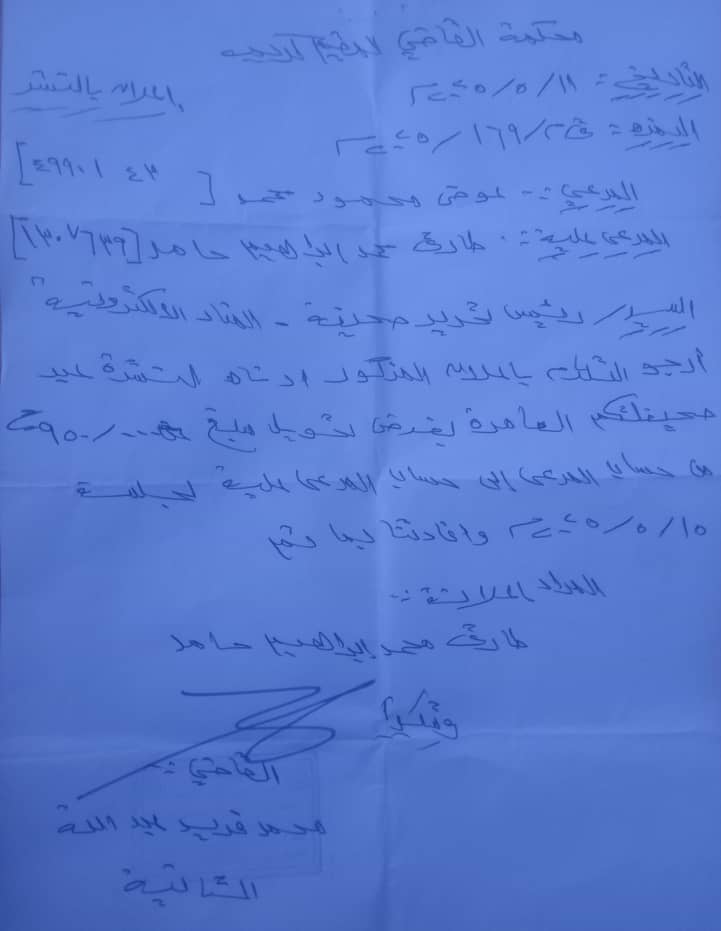 محكمة القاضي المقيم
التاريخ :- ١١/٥/٢٠٢٥م
إعلان بالنشر
النمرة :- ق م/١٦٩/٢٠٢٥م
المدعي :- عوض محمود محمد [
المدعى عليه :- طارق محمد ابراهيم حامد [١٣٠٧٦٣٩]
السيد/ رئيس تحرير صحيفة - الالكترونية
أرجو التكرم بإعلان المذكور ادناه النشرة عبر
صحيفتكم العامرة بغرض تحويل مبلغ
من حساب المدعى إلى حساب المدعى عليه لجلسة
١٥/٥/٢٠٢٥م وافادتنا بما تم
المراد إعلانه :-
طارق محمد ابراهيم حامد
وشكراً
القاضي :-
محمد فريد عبد الله
الثانية